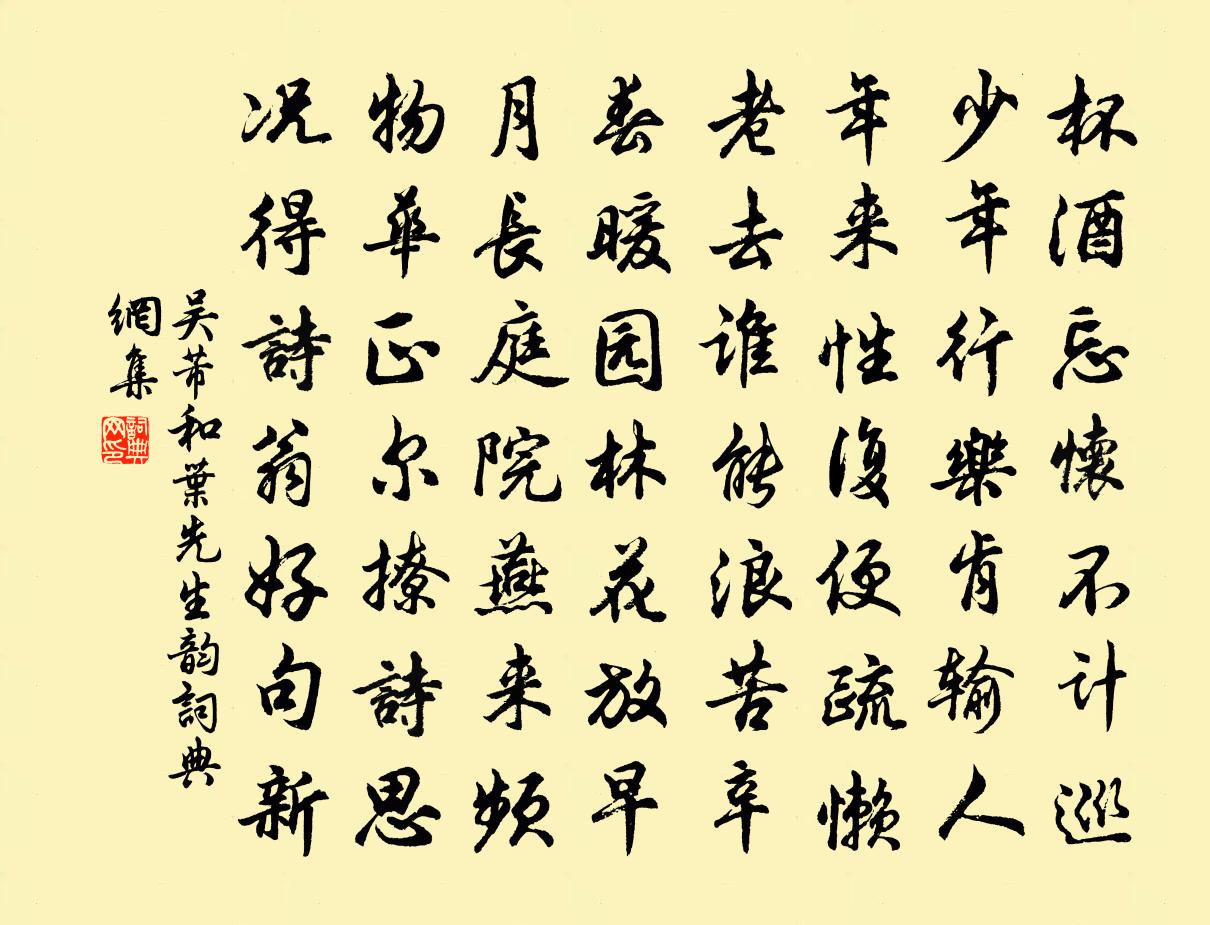 杯酒忘懷不计巡
少年行樂肯输人
年来性復便疏懒
老去谁能浪苦辛
春暖园林花放早
月長庭院燕来频
物華正尔撩詩思
况得詩翁好句新
吴芾和葉先生韵詞典
網集
詞典
网印